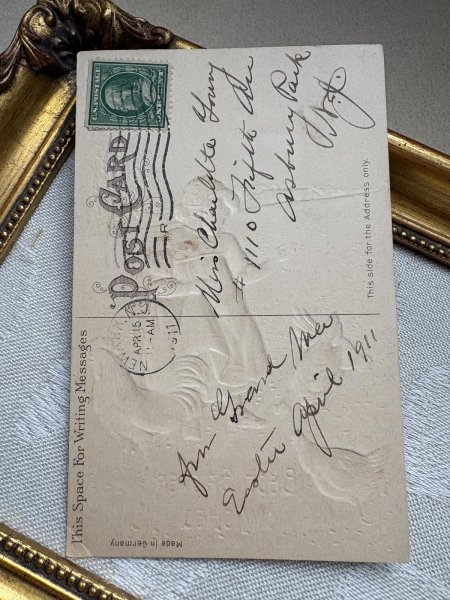 This Space For Writing Messages
POST CARD
This side for the Address only.
U.S. POSTAGE
NEWARK, N
APR 15
-AM
1911
Miss Charlotte Young
# 1110 Fifth Ave
Asbury Park
N.J.
From Grand Ma
Easter April 1911
Made in Germany